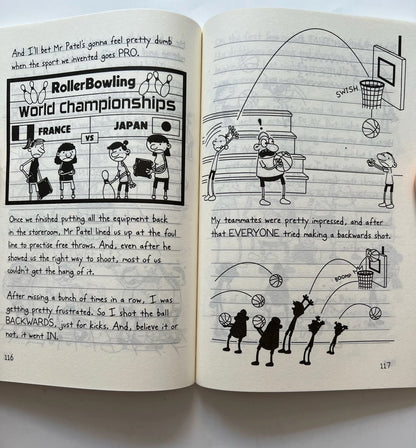 And I'll bet Mr Patel's gonna feel pretty dumb
when the sport we invented goes PRO.
RollerBowling
World Championships
FRANCE
VS
JAPAN
Once we finished putting all the equipment back
in the storeroom, Mr Patel lined us up at the foul
line to practise free throws. And, even after he
showed us the right way to shoot, most of us
couldn't get the hang of it.
After missing a bunch of times in a row, I was
getting pretty frustrated. So I shot the ball
BACKWARDS, just for kicks. And, believe it or
not, it went IN.
116
SWISH
!
My teammates were pretty impressed, and after
that EVERYONE tried making a backwards shot.
BOOMP
117